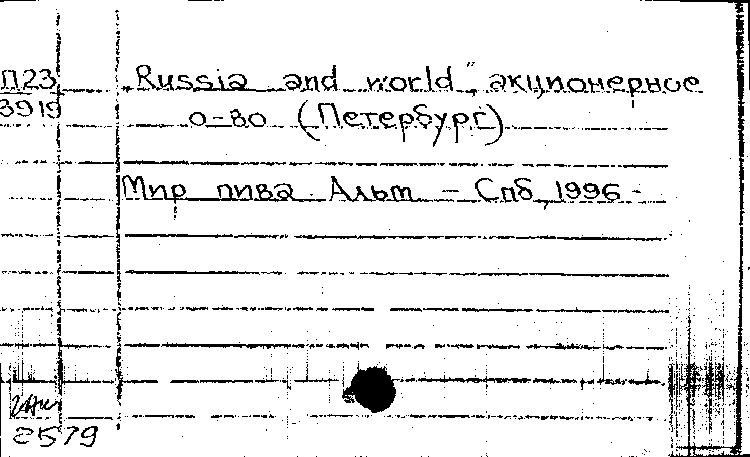 П23
3919
„Russia and world", акционерное
о-во (Петербург)
Мир пива. Альт – Спб, 1996 -
2579